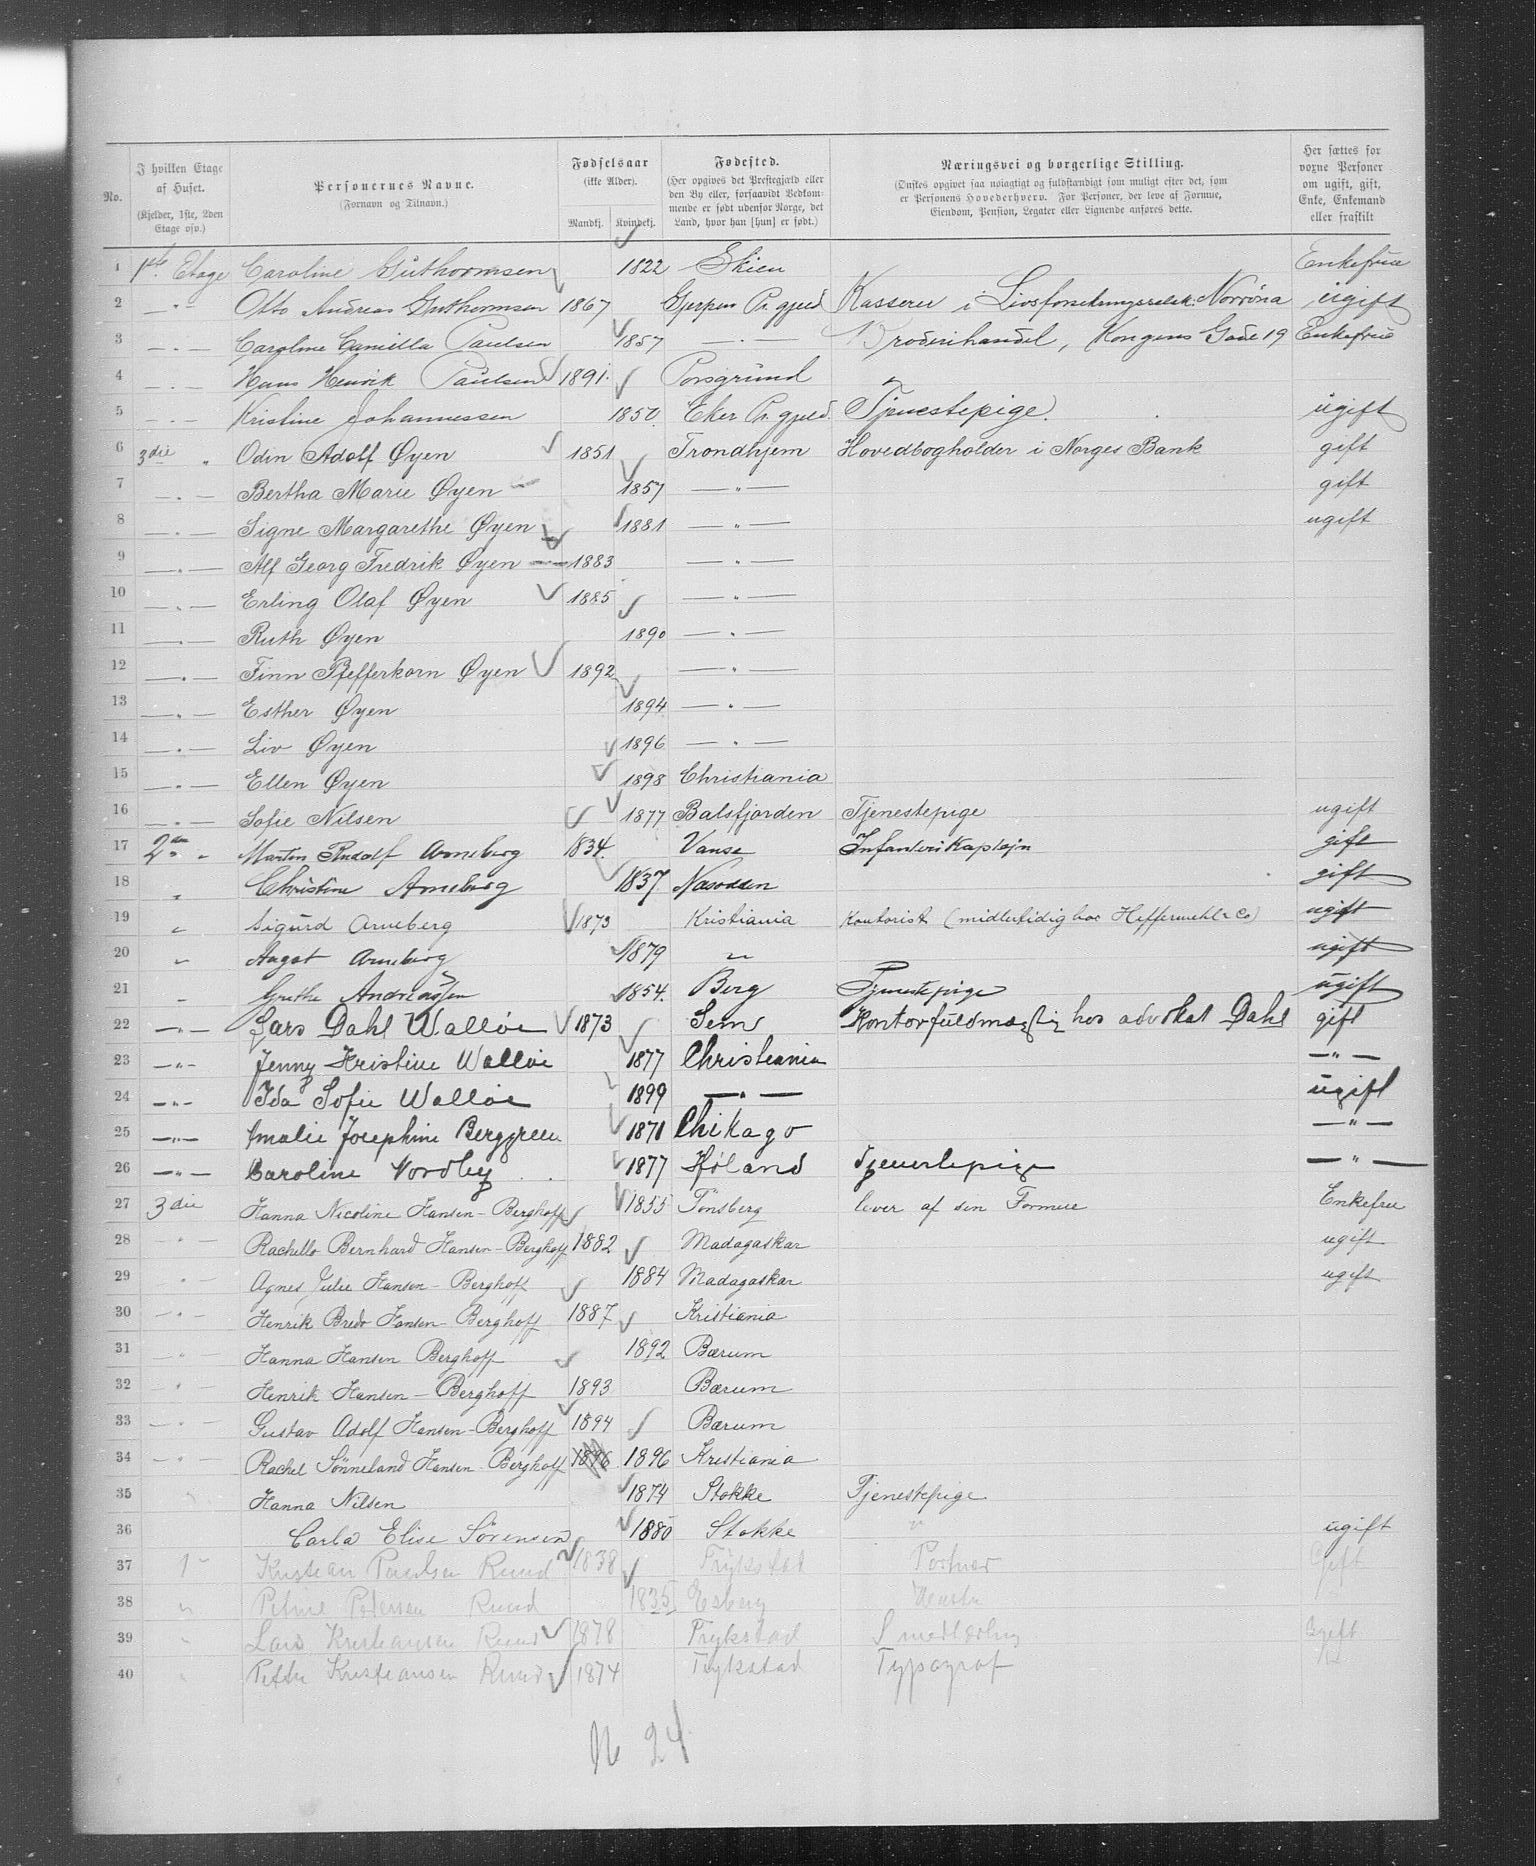 No.
I hvilken Etage af Huset. (Kjelder, 1ste, 2den Etage osv.)
Personernes Navne. (Fornavn og Tilnavn.)
Fødselsaar (ikke Alder). Mandkj. Kvindekj.
Fødested. (Her opgives det Prestegjæld eller den By eller, forsaavidt Vedkommende er født udenfor Norge, det Land, hvor han [hun] er født.)
Næringsvei og borgerlige Stilling. (Ønskes opgivet saa nøiagtigt og fuldstændigt som muligt efter det, som er Personens Hovederhverv. For Personer, der leve af Formue, Eiendom, Pension, Legater eller Lignende anføres dette.)
Her sættes for voxne Personer om ugift, gift, Enke, Enkemand eller fraskilt
1 1ste Etage Caroline Guthormsen 1822 Skien Enkefrue
2 — " — Otto Andreas Guthormsen 1867 Gjerpen Pr. gjeld Kasserer i Livsforsikringsselsk. Norröna ugift
3 — " — Caroline Camilla Paulsen 1857 — " — Broderihandel, Kongens Gade 19 Enkefrue
4 — " — Hans Henrik Paulsen 1891. Porsgrund
5 — " — Kristine Johannessen 1850. Eker Pr. gjeld. Tjenestepige. ugift
6 3die " Odin Adolf Øyen 1851 Trondhjem Hovedbogholder i Norges Bank gift
7 — " — Bertha Marie Øyen 1857 — " — gift
8 — " — Signe Margarethe Øyen 1881 — " — ugift
9 — " — Alf Georg Fredrik Øyen 1883 — " —
10 — " — Erling Olaf Øyen 1885 — " —
11 — " — Ruth Øyen 1890 — " —
12 — " — Finn Pfefferkorn Øyen 1892 — " —
13 — " — Esther Øyen 1894 — " —
14 — " — Liv Øyen 1896 — " —
15 — " — Ellen Øyen 1898 Christiania
16 — " — Sofie Nilsen 1877 Balsfjorden Tjenestepige ugift
17 2den " Martin Rudolf Arneberg 1834. Vanse Infanterikaptejn gift
18 " Christine Arneberg 1837 Næsodden gift
19 " Sigurd Arneberg 1873 Kristiania Kontorist (midlertidig hos Heffermehl & Co) ugift
20 " Aagot Arneberg 1879 " ugift
21 " Grethe Andreassen 1854. Berg Tjenestepige ugift
22 — " — Lars Dahl Walløe 1873 Sem Kontorfuldmægtig hos advokat Dahl gift
23 — " — Jenny Kristine Walløe 1877 Christiania — " —
24 — " — Ida Sofie Walløe 1899 — " — ugift
25 — " — Amalie Josephine Berggreen 1871 Chikago — " —
26 — " — Caroline Nordby 1877 Høland Tjenestepige — " —
27 3die Hanna Nicoline Hansen-Berghoff 1855 Tönsberg lever af sin Formue Enkefru
28 — " — Bernhard Hansen-Berghoff 1882 Madagaskar ugift
29 — " — Agnes Julie Hansen-Berghoff 1884 Madagaskar ugift
30 — " — Henrik Bredo Hansen-Berghoff 1887 Kristiania
31 — " — Hanna Hansen Berghoff 1892 Bærum
32 — " — Henrik Hansen-Berghoff 1893 Bærum
33 — " — Gustav Adolf Hansen-Berghoff 1894 Bærum
34 — " — Rachel Sönneland Hansen-Berghoff 1896 1896 Kristiania
35 " Hanna Nilsen 1874 Stokke Tjenestepige
36 Carla Elise Sörensen 1880 Stokke " ugift
37 1 " Kristian Paulsen Ruud 1838 Trykstad Portner Gift
38 " Petersen Ruud 1835
39 " Lars Kristiansen Ruud 1878 Trykstad Smedlærling Ugift
40 " Kristiansen Ruud 1874 Trykstad Typograf
N 24